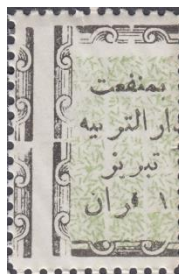 بمنفعت
دار التربیه
تبریز
۱ قران